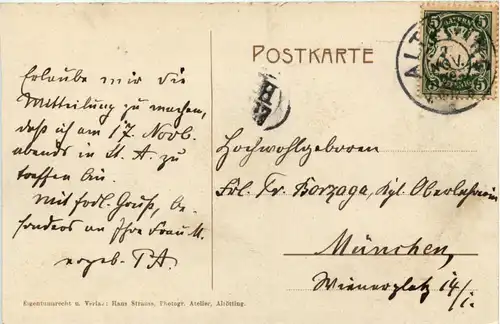 POSTKARTE
BAYERN
5 5
Erlaube mir die
Mitteilung zu machen,
daß ich am 17. Novb.
abends in M. A. zu
treffen bin.
Mit frdl. Gruß, be-
sonders an Ihre Frau M.
ergeb. P.A.
Hochwohlgeboren
Frl. Fr. Borzaga, Kgl. Oberlehrerin
München,
Wienerplatz 14/I.
Eigentumsrecht u. Verlag: Hans Strauss, Photogr. Atelier, Altötting.